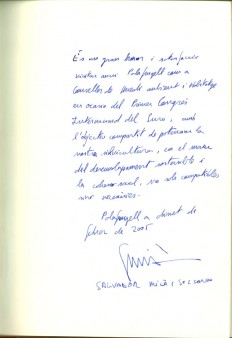 És un gran honor i satisfacció
visitar avui Palafrugell com a
Conseller de Medi Ambient i Habitatge
en ocasió del Primer Congrés
Internacional del Suro, amb
l'objectiu compartit de potenciar la
nostra silvicultura, en el marc
del desenvolupament sostenible i
la cohesió social, no sols compatibles
sinó necessàries.
Palafrugell a de
febrer de 2005
SALVADOR MILÀ I SOLSONA